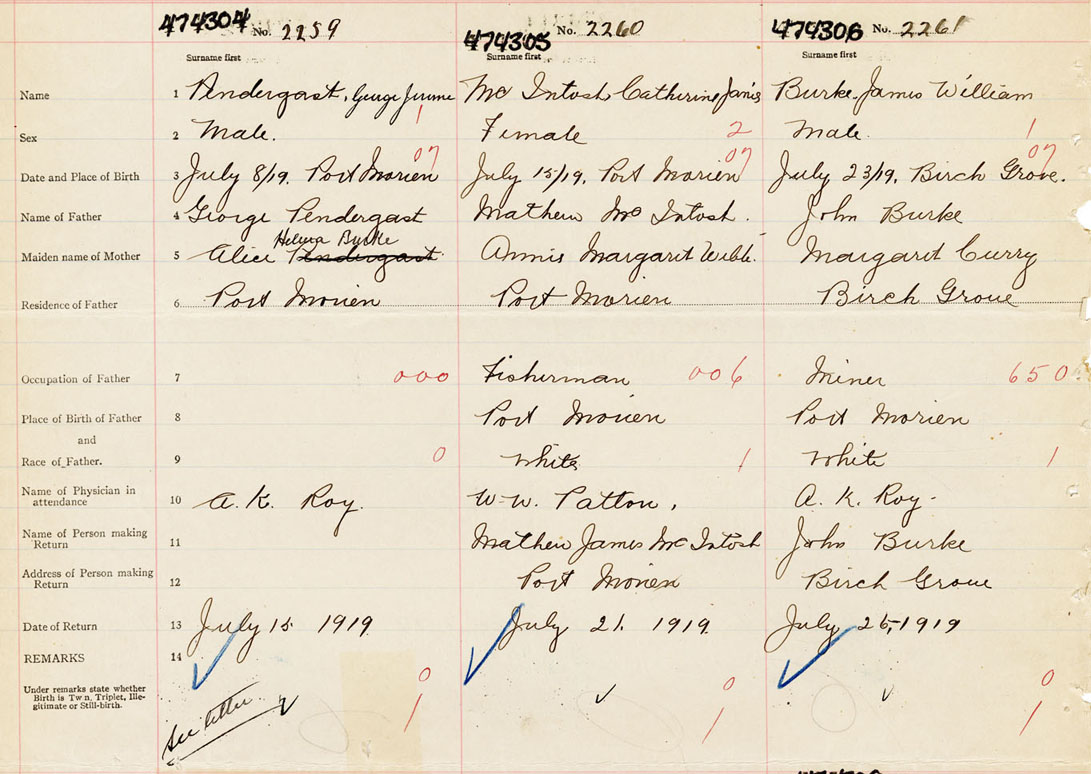 474304 No. 2259 474305 No. 2260 474306 No. 2261
Surname first Surname first Surname first
Name 1 Pendergast, George Jerome Mc Intosh Catherine Janis Burke James William
1
Sex 2 Male. Female 2 Male. 1
07 07 07
Date and Place of Birth 3 July 8/19. Port Morien July 15/19, Port Morien July 23/19, Birch Grove.
Name of Father 4 George Pendergast Mathew Mc Intosh. John Burke
Helena Burke
Maiden name of Mother 5 Alice Pendergast Annis Margaret Webb. Margaret Curry
Residence of Father 6 Port Morien Port Morien Birch Grove
Occupation of Father 7 000 Fisherman 006 Miner 650
Place of Birth of Father 8 Port Morien Port Morien
and
Race of Father. 9 0 White 1 White 1
Name of Physician in
attendance 10 A. K. Roy. W. W. Patton, A. K. Roy.
Name of Person making
Return 11 Mathew James Mc Intosh John Burke
Address of Person making
Return 12 Port Morien Birch Grove
Date of Return 13 July 15 1919 July 21. 1919 July 25, 1919
REMARKS 14
0 0 0
Under remarks state whether
Birth is Twin, Triplet, Ille-
gitimate or Still-birth.
1 1 1
See letter